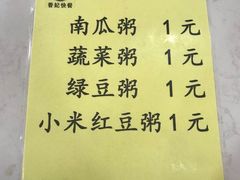 香妃快餐
南瓜粥 1元
蔬菜粥 1元
绿豆粥 1元
小米红豆粥1元